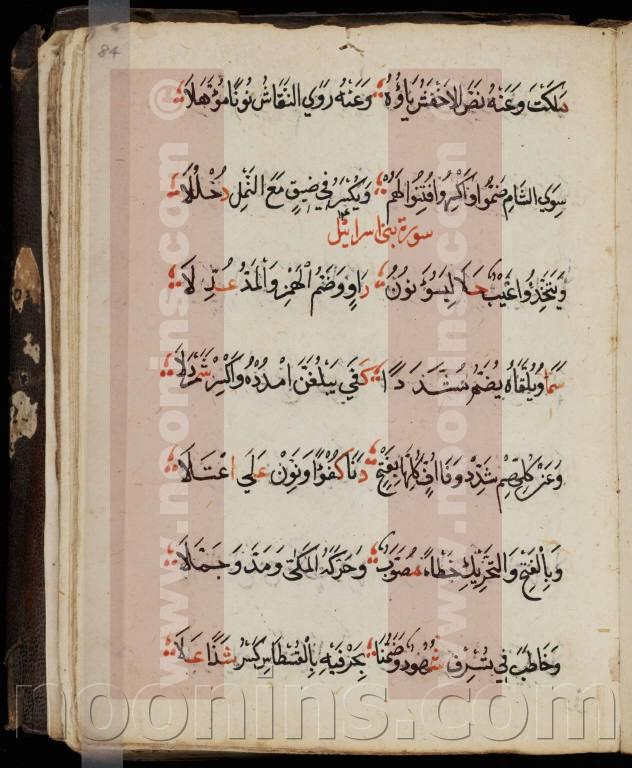 84
مَلَكْتَ وَعَنْهُ نَصَّ الاَخْفَشُ يَاؤُهُ وَعَنْهُ رَوَي النَّقَّاشُ نُونًا مُوَهَّلَا
سِوَي الشَّامِ ضَمُّوا وَاكْسِرُوا فُتِنُوا لَهُمْ وَيُكْسَرُ فِي ضَيْقٍ مَعَ النَّمْلِ دُخْلُلَا
سورة بني اسرائيل
وَيَتَّخِذُوا غَيْبٌ حَلَا لِيَسُوءَ نُونُ رَاوٍ وَضَمُّ الْهَمْزِ وَالْمَدِّ عُدِّلَا
سَمَا وَيُلَقَّاهُ يُضَمُّ مُشَدَّدًا كَفَي يَبْلُغَنَّ امْدُدْهُ وَاكْسِرْ شَمَرْدَلَا
وَعَنْ كُلِّهِمْ شَدِّدْ وَفَا اُفِّ كُلِّهَا بِفَتْحٍ دَنَا كُفْؤًا وَنَوِّنْ عَلَي اعْتِلَا
وَبِالْفَتْحِ وَالتَّحْرِيكِ خِطْاً مُصَوَّبٌ وَحَرَّكَهُ الْمَكِّي وَمَدَّ وَجَمَّلَا
وَخَاطَبَ فِي يُسْرِفْ شُهُودٌ وَضَمُّنَا بِحَرْفَيْهِ بِالْقُسْطَاسِ كَسْرُ شَذًا عَلَا
www.noonins.com ©
www.noonins.com ©
noonins.com